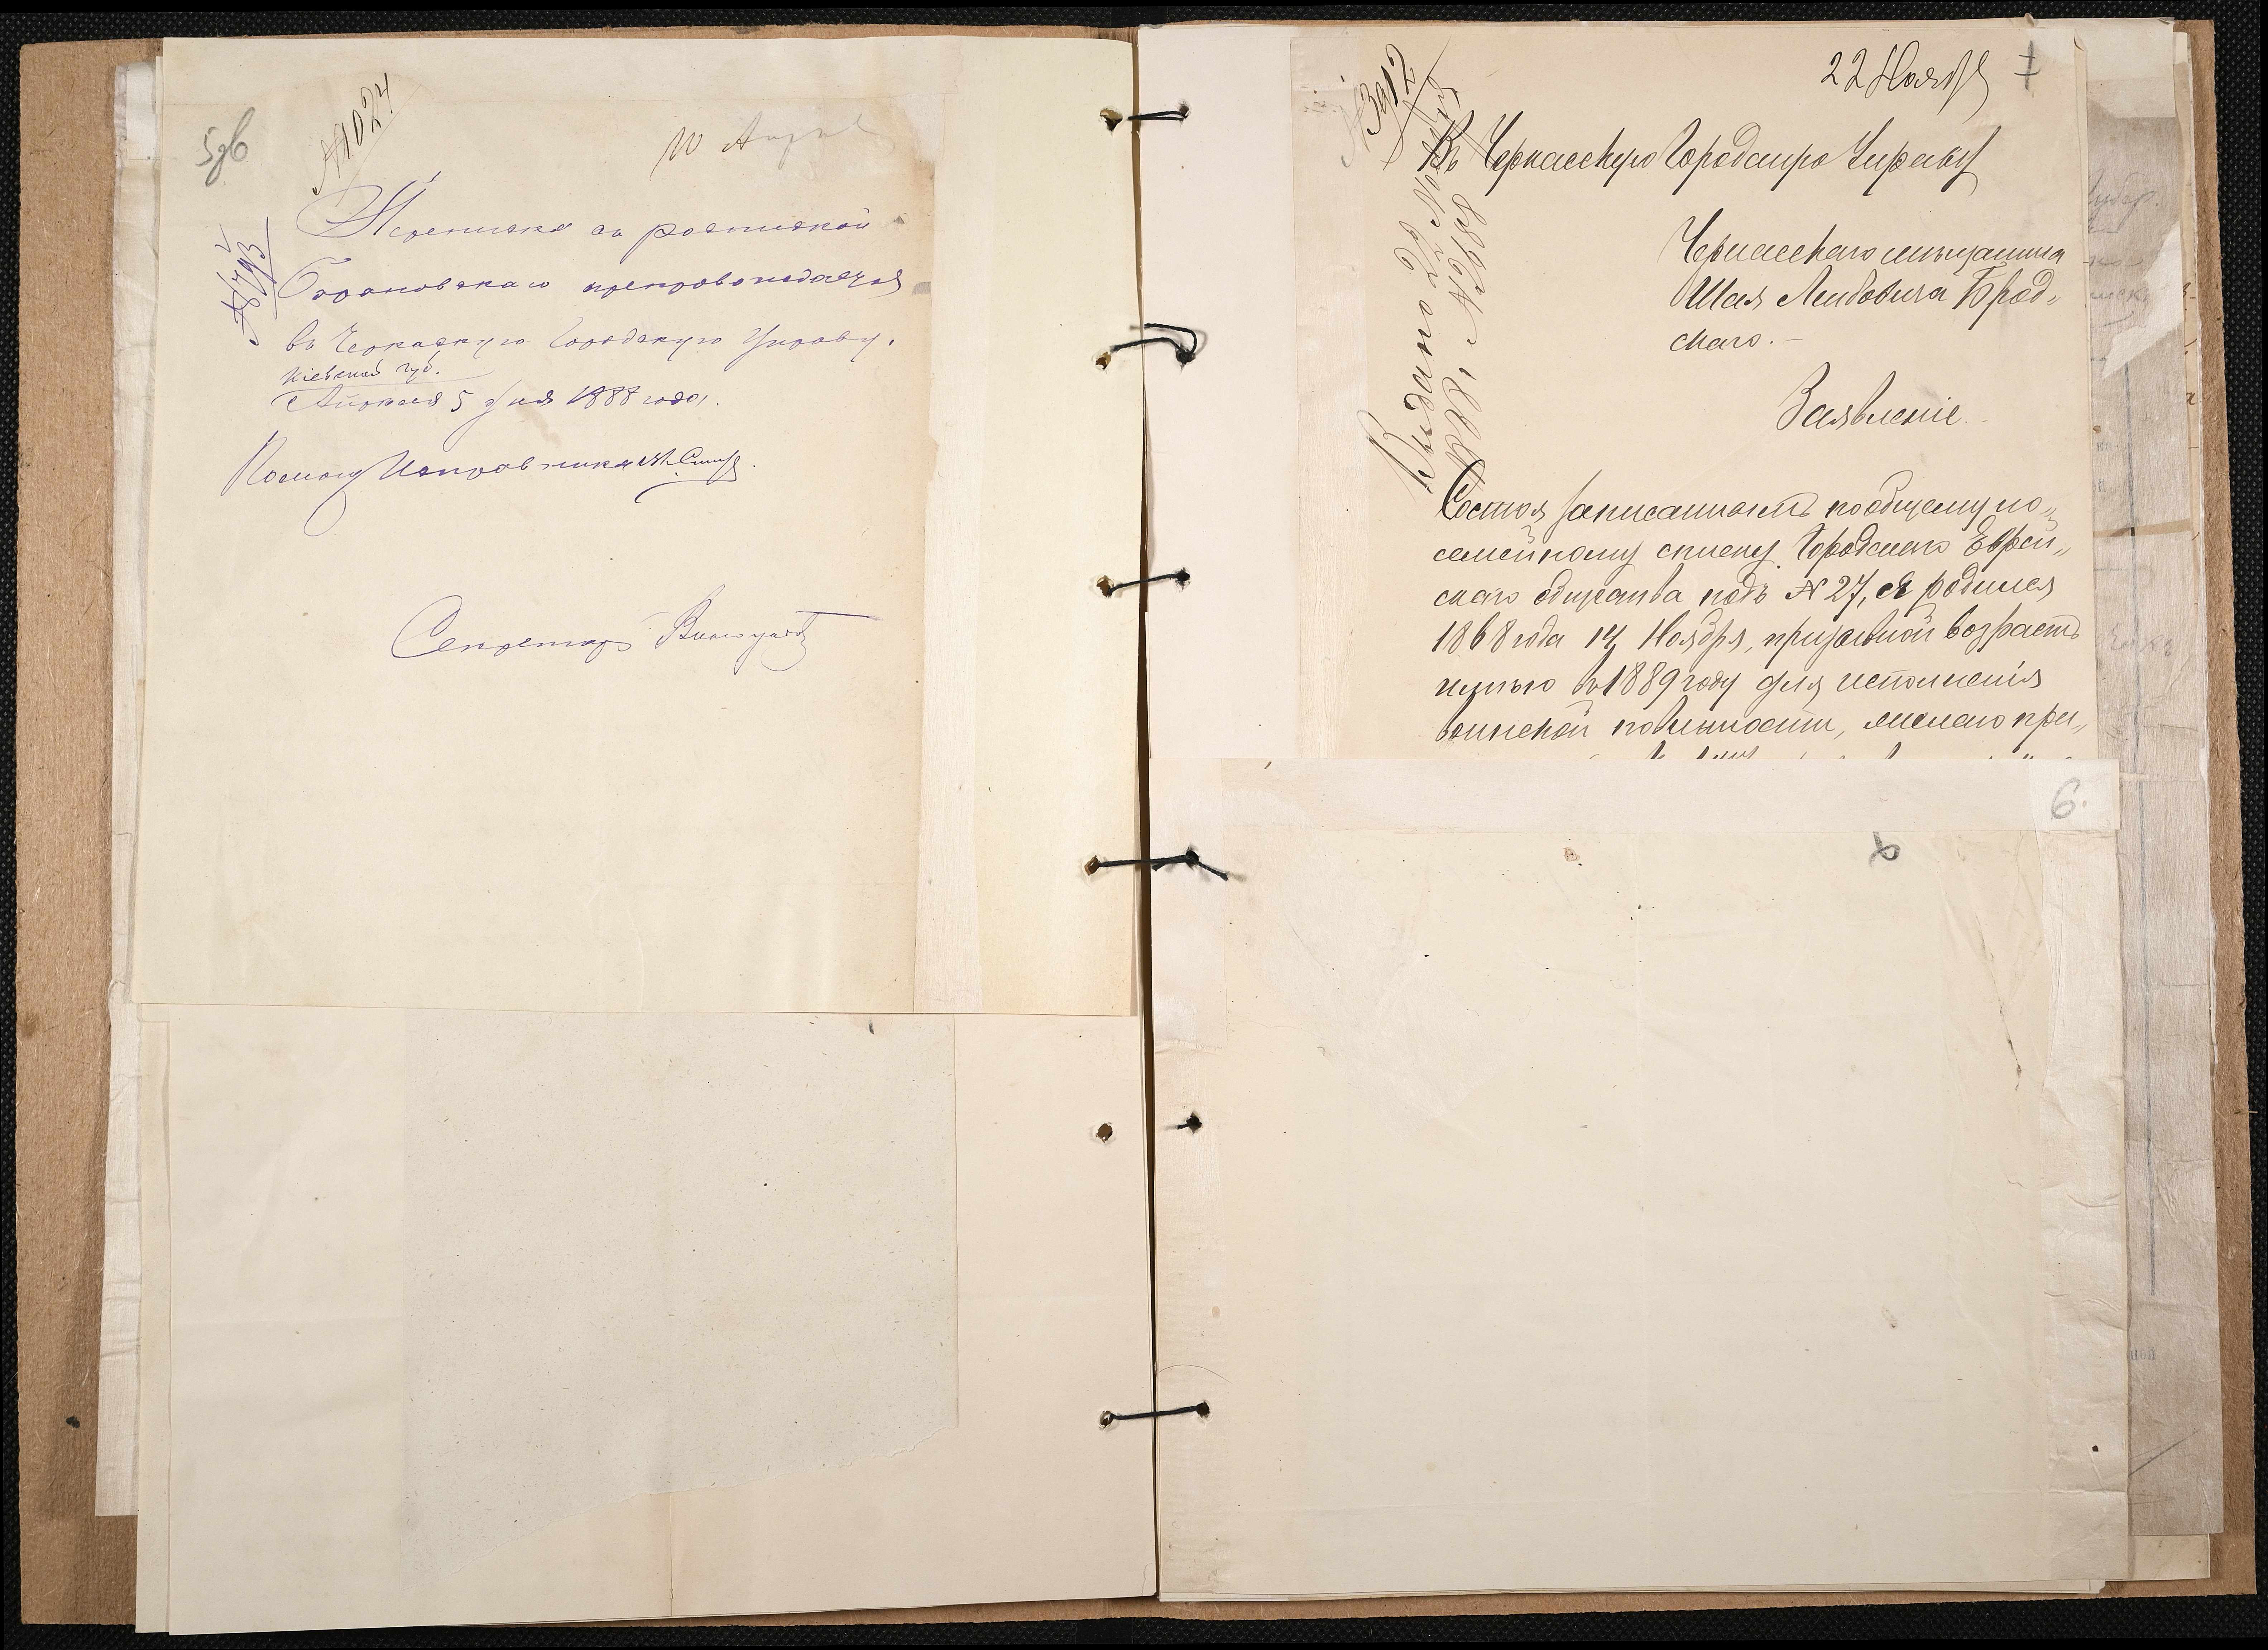 5 зв
№ 1024
10 Апрѣл
№ 4793
Переписка съ роспиской
Барановскаго препровождается
въ Черкаскую Городскую Управу,
Кіевской губ.
Апрѣля 5 дня 1888 года.
Помощ. Исправника
Секретарь
22 Ноября 7
№ 3912
Въ Черкасскую Городскую Управу
Черкасскаго мѣщанина
Шая Лейбовича Брод„
скаго.—
Заявленіе.
Выдано 22 Ноября
1888 г. №
Состоя записаннымъ по общему по„
семейному списку Городскаго Еврей„
скаго общества подъ № 27, я родился
1868 года 14 Ноября, призывной возрастъ
имѣю въ 1889 году для исполненія
воинской повинности, желаю при„
6.